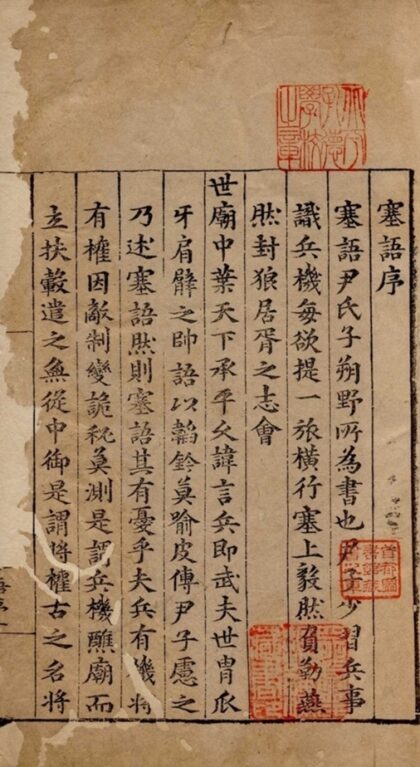 塞語序
塞語尹氏子朔野所為書也尹子少習兵事
識兵機每欲提一旅橫行塞上毅然負勒燕
然封狼居胥之志會
世廟中葉天下承平久諱言兵即武夫世胄爪
牙肩臂之帥語以韜鈐莫踰皮傅尹子慮之
乃述塞語然則塞語其有憂乎夫兵有機將
有權因敵制變詭秘莫測是謂兵機醮廟而
立扶轂遣之無從中御是謂將權古之名將
首都圖
書館藏
書之章